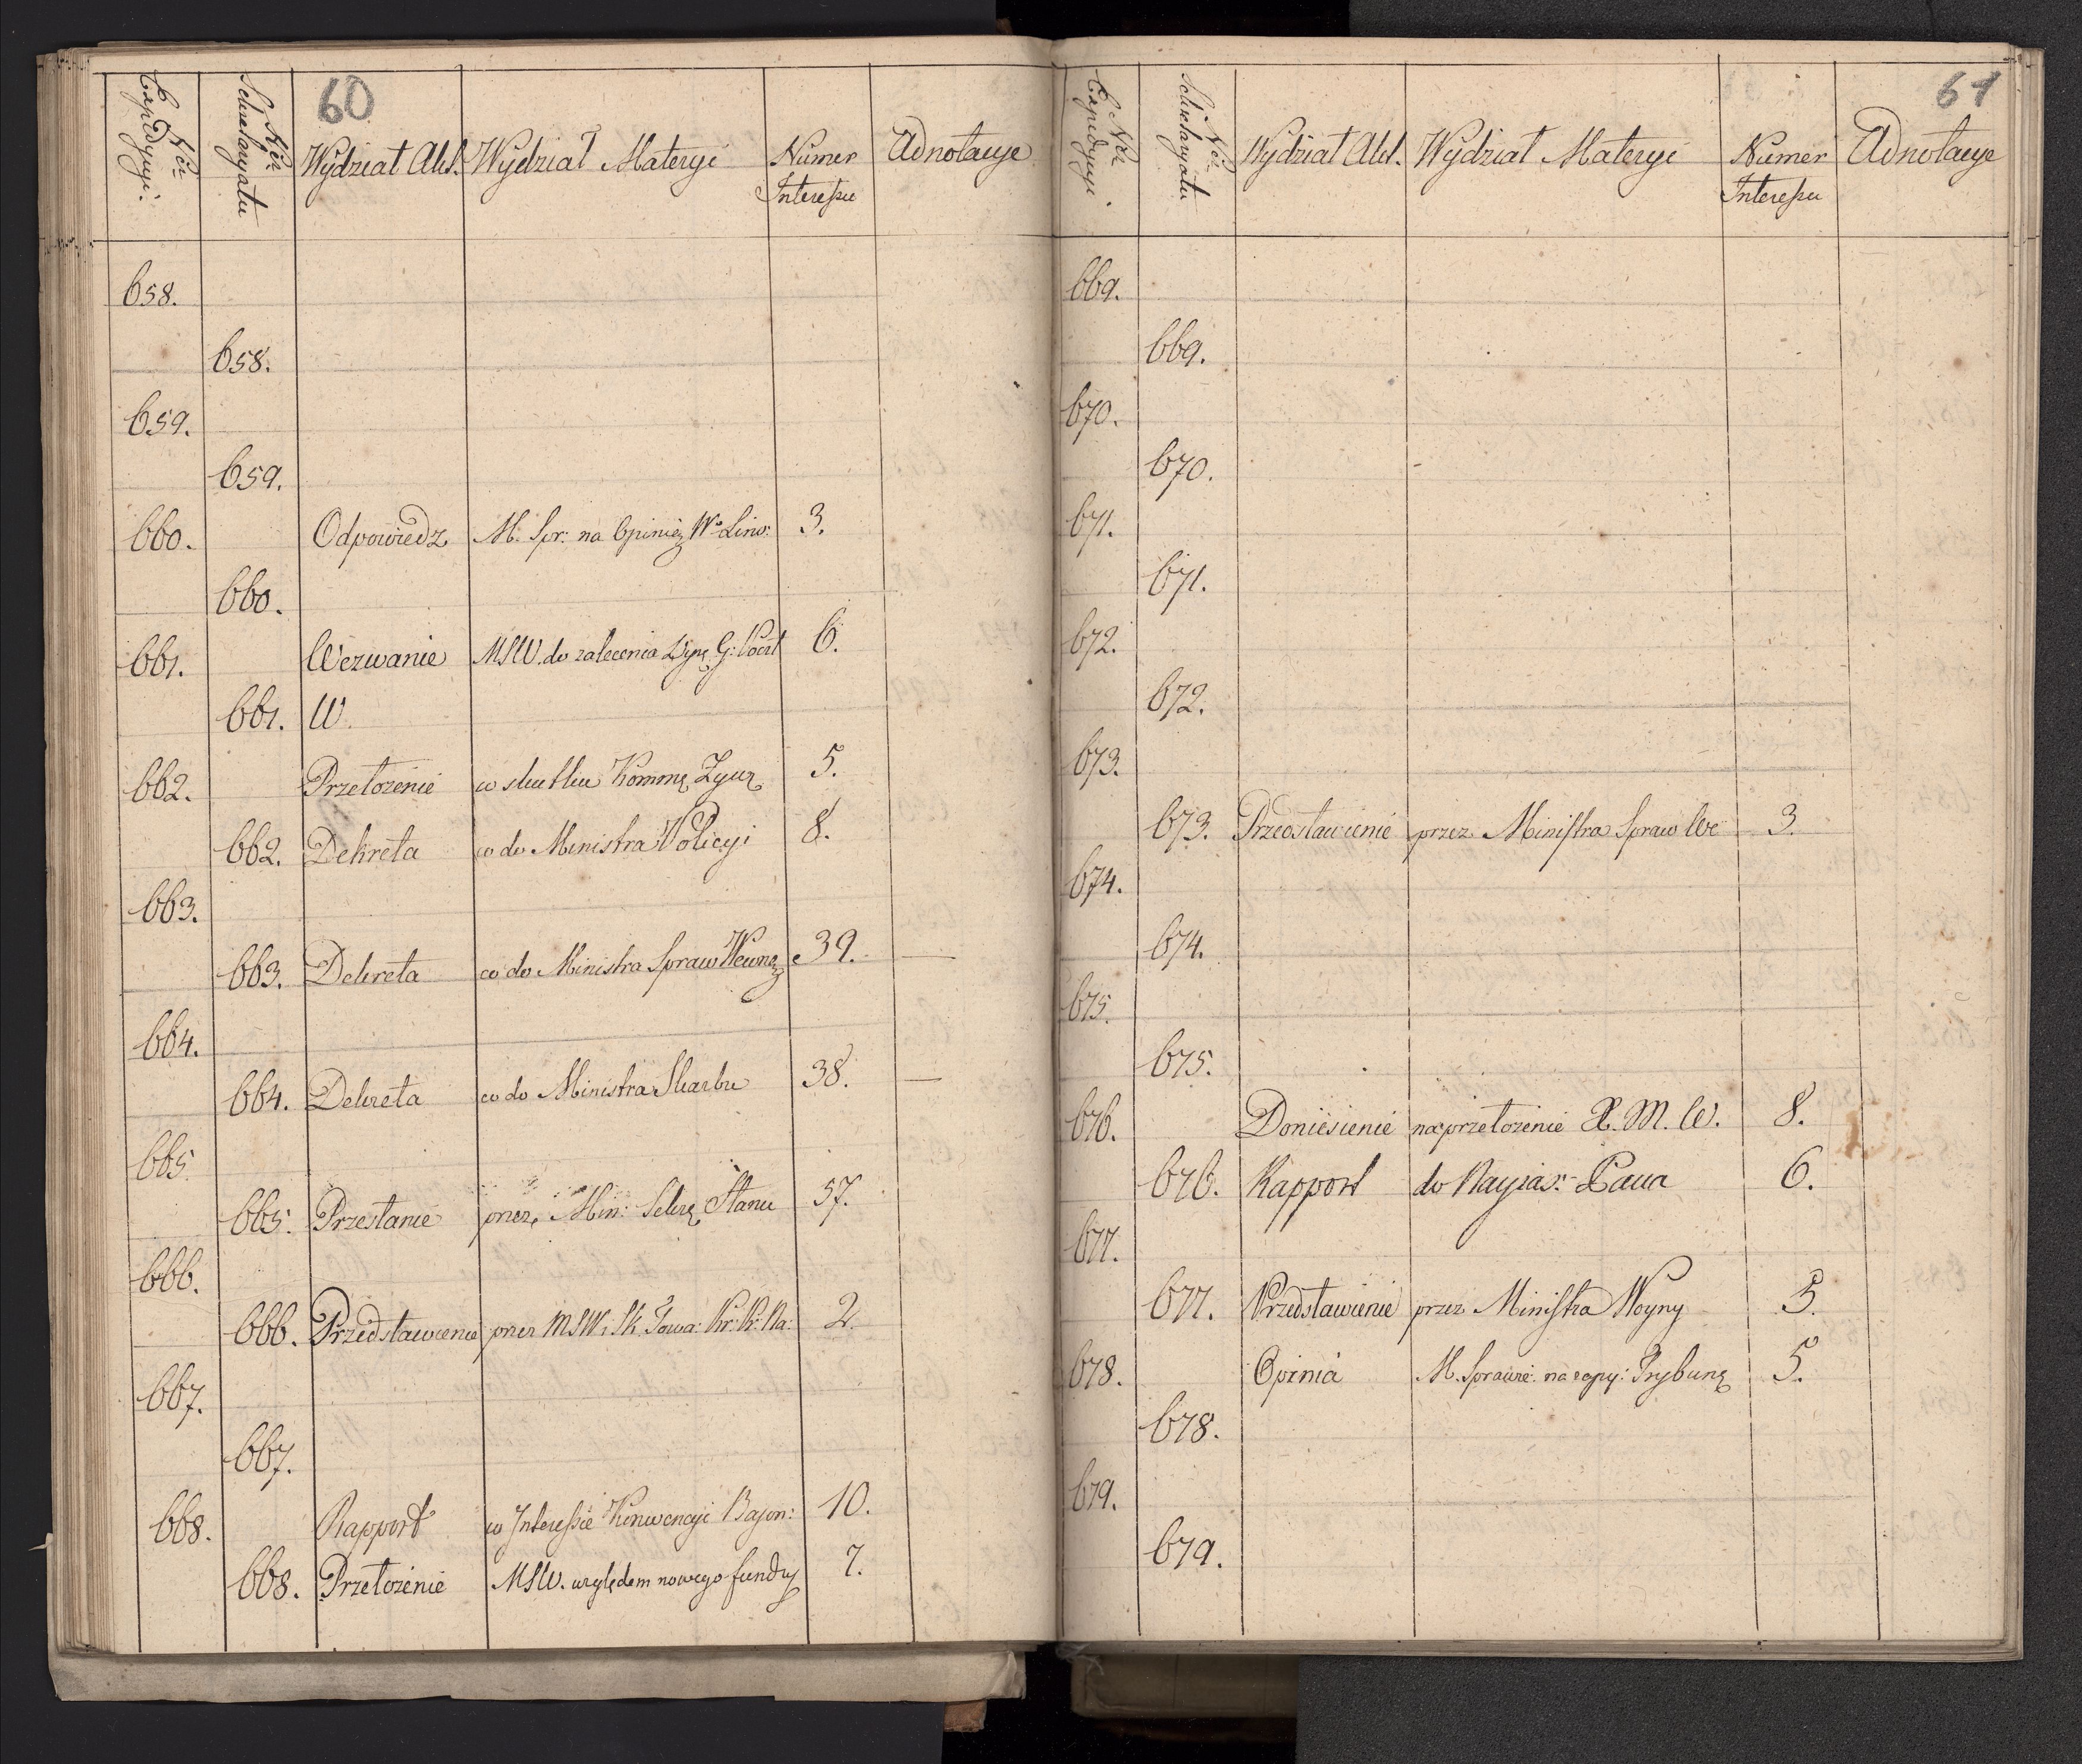 60
Nör Expedycyi.
Nör Sekretaryatu
Wydział Akt.
Wydział Materyi
Numer Interesu
Adnotacye
658.
658.
659.
659.
660. Odpowiedz M. Spr: na Opinię 3.
660.
661. Wezwanie MSW. do zalecenia Dyrę G: Poczt 6.
661. W.
662. Przełożenie w skutku Kommę 5.
662. Dekreta co do Ministra Policyi 8.
663.
663. Dekreta co do Ministra Spraw Wewnę 39. —
664.
664. Dekreta co do Ministra Skarbu 38. —
665.
665. Przesłanie przez Min: Sekrę Stanu 57.
666.
666. Przedstawienie przez MSW. 2.
667.
667.
668. Rapport w Interessie Konwencyi Bajon: 10.
668. Przełożenie MSW. względem nowego fundu 7.
61
Nör Expedycyi.
Nör Sekretaryatu
Wydział Akt.
Wydział Materyi
Numer Interesu
Adnotacye
669.
669.
670.
670.
671.
671.
672.
672.
673.
673. Przedstawienie przez Ministra Spraw We 3.
674.
674.
675.
675.
676. Doniesienie na przełożenie X. M. W. 8.
676. Rapport do Nayias: Pana 6.
677.
677. Przedstawienie przez Ministra Woyny 3.
678. Opinia M. Sprawie: na zapy: Trybunę 5.
678.
679.
679.